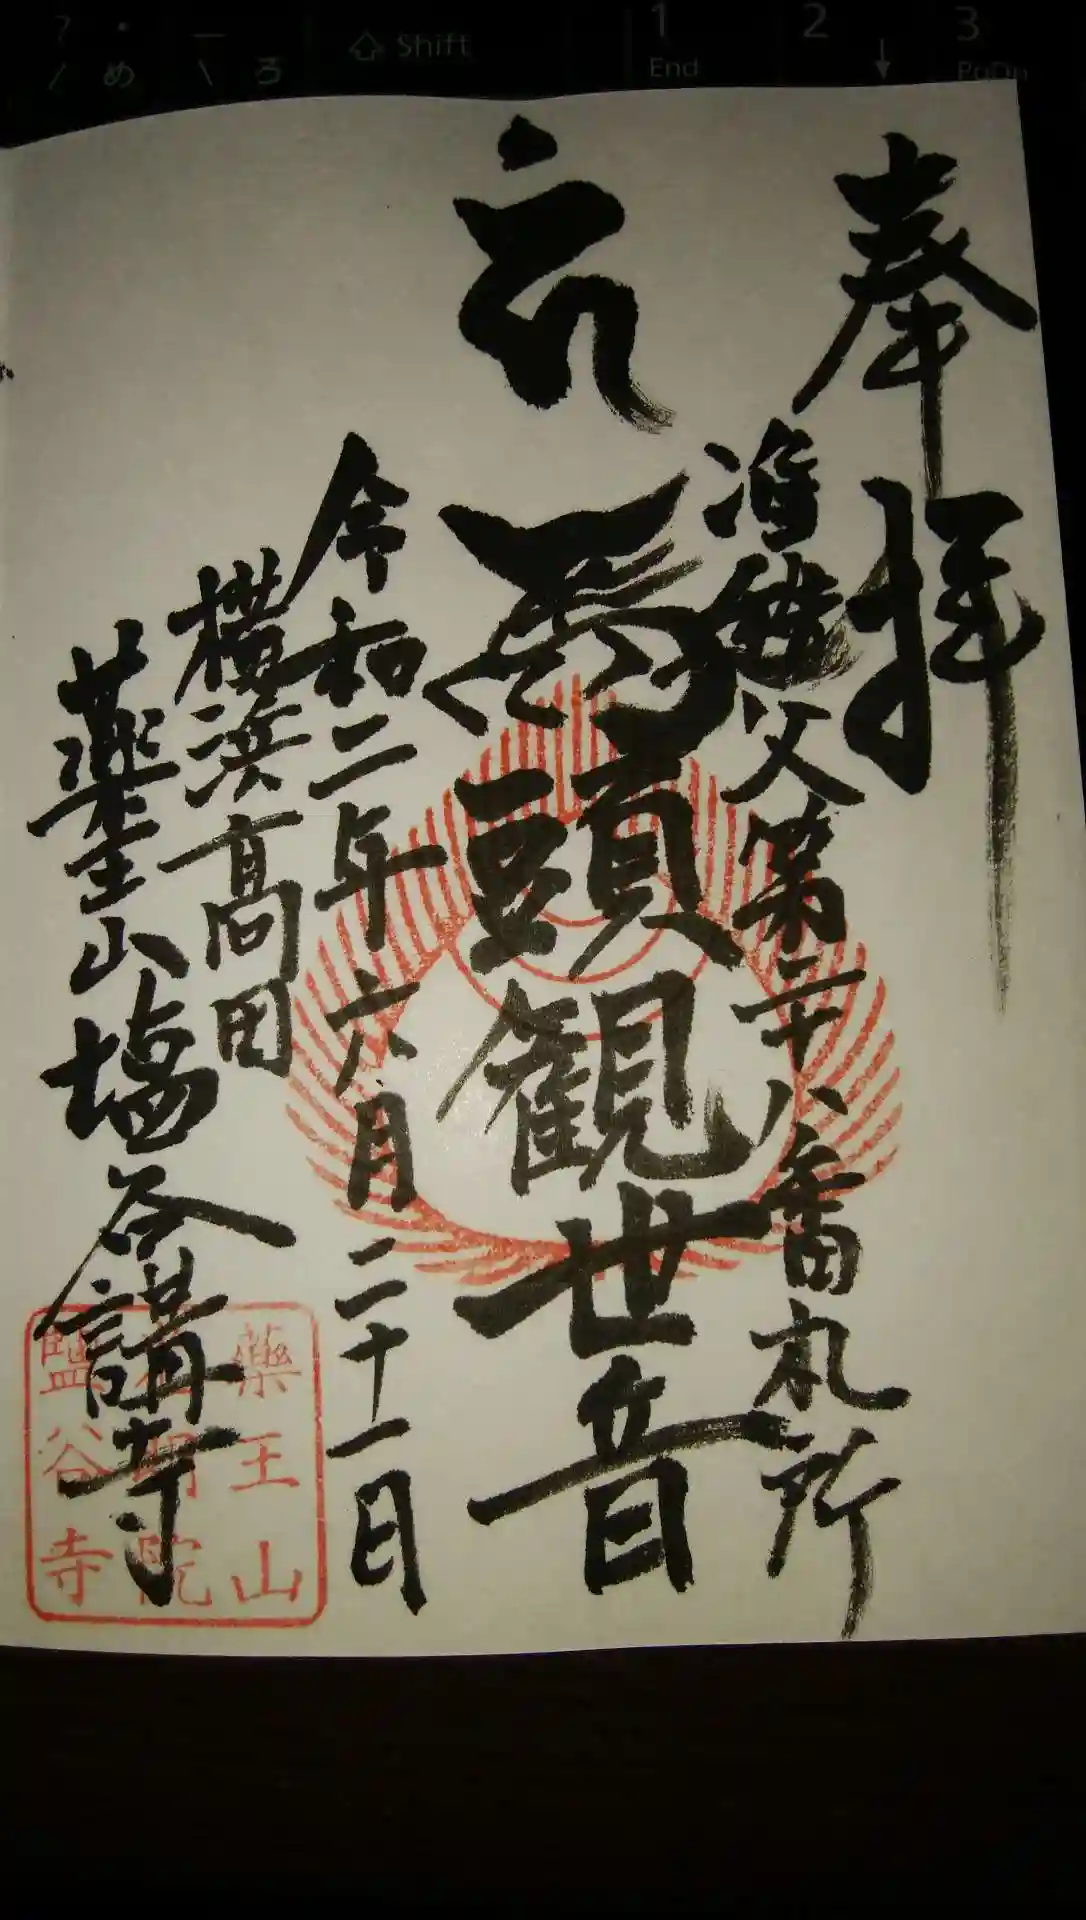 ? ・ / め
_ \ ろ
Shift
1 End
2 ↓
3 PgDn
奉拝
准秩父第二十八番札所
馬頭観世音
令和二年六月二十一日
横浜高田
薬王山塩谷講寺
藥王山
明院
鹽谷寺